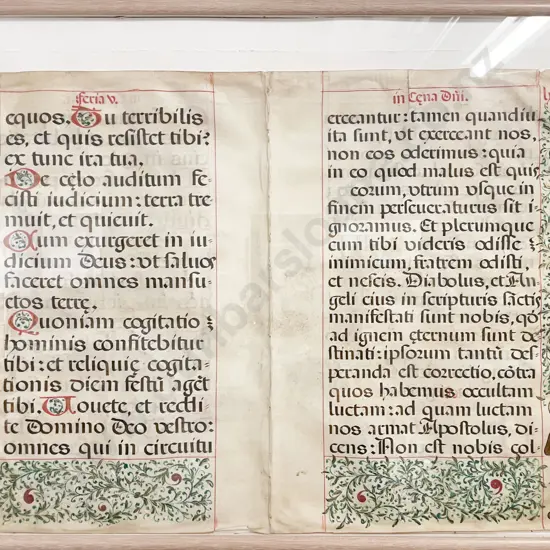 feria v.
equos. Tu terribilis
es, et quis resistet tibi:
ex tunc ira tua.
De cęlo auditum fe-
cisti iudicium: terra tre-
muit, et quieuit.
Cum exurgeret in iu-
dicium Deus: vt saluos
faceret omnes mansu-
etos terrę.
Quoniam cogitatio
hominis confitebitur
tibi: et reliquię cogita-
tionis diem festũ agẽt
tibi. Vouete, et reddi-
te Domino Deo vestro:
omnes qui in circuitu
in Cęna Dñi.
exerceantur: tamen quandiu
ita sunt, vt exerceant nos,
non eos oderimus: quia
in eo quod malus est quis
eorum, vtrum vsque in
finem perseueraturus sit i-
gnoramus. Et plerumque
cum tibi videris odisse
inimicum, fratrem odisti,
et nescis. Diabolus, et An-
geli eius in scripturis sactis
manifestati sunt nobis, qđ
ad ignem ęternum sunt de
stinati: ipsorum tantũ des-
peranda est correctio, cõtra
quos habemus occultam
luctam: ad quam luctam
nos armat Apostolus, di-
cens: Non est nobis col-